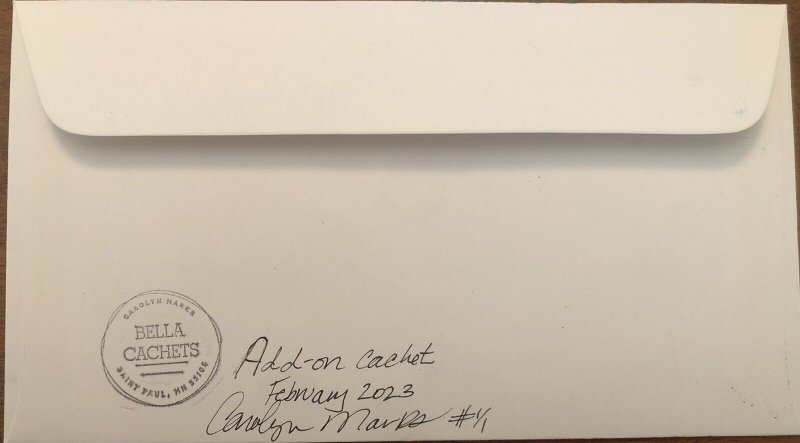 CAROLYN MARKS
BELLA
CACHETS
SAINT PAUL, MN 55106
Add-on cachet
February 2023
Carolyn Marks #1/1